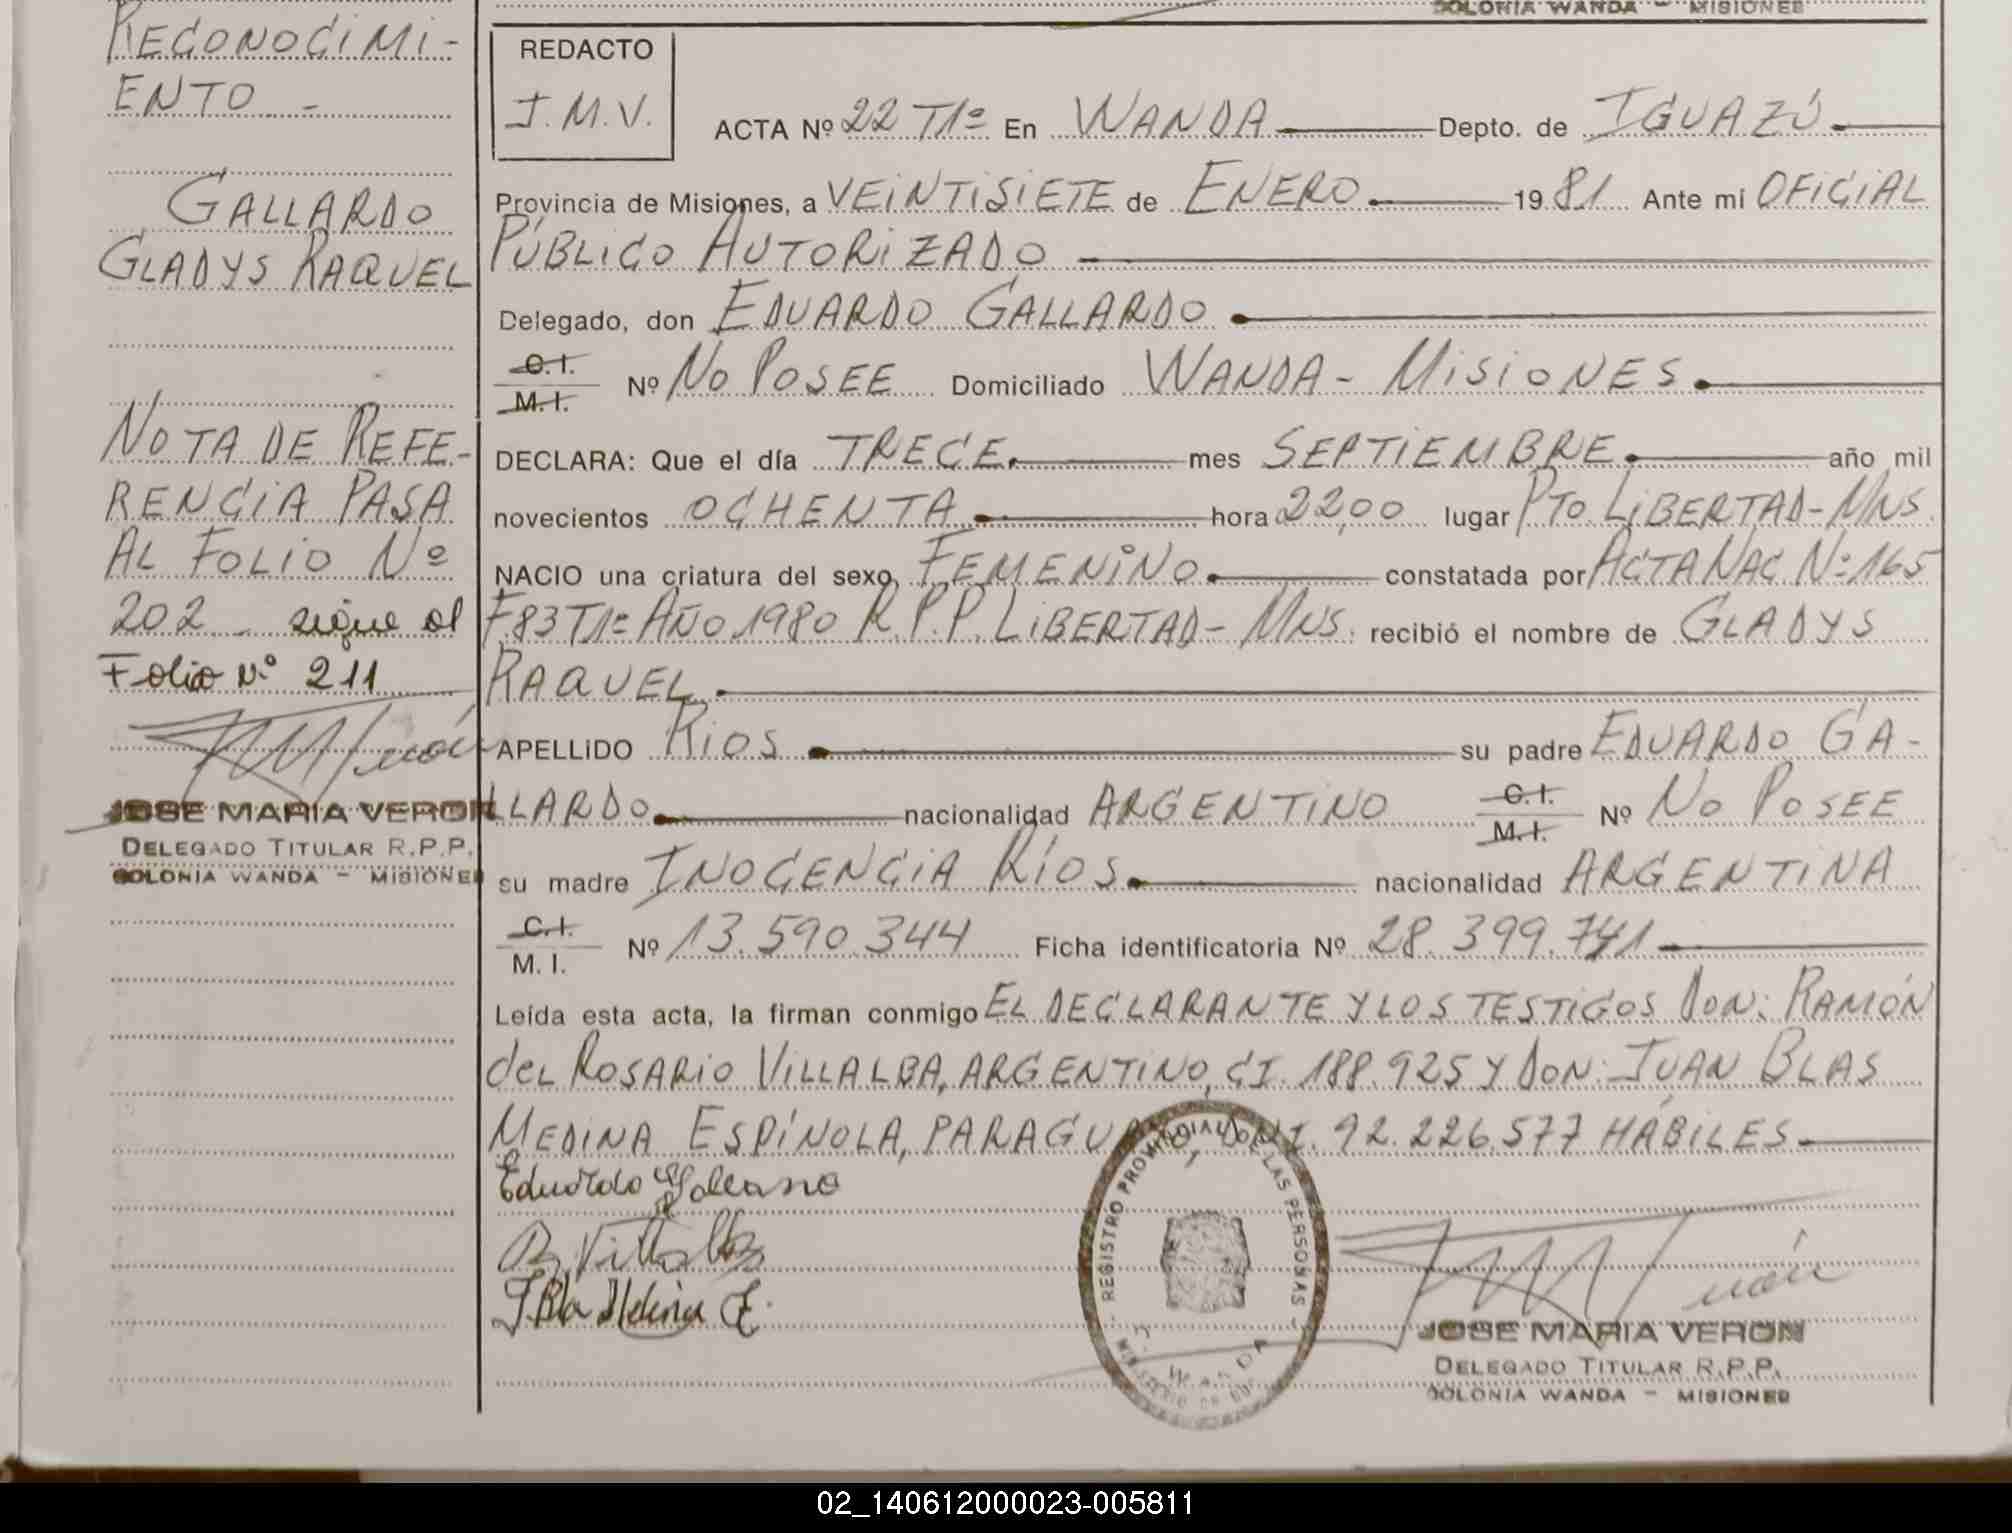 COLONIA WANDA - MISIONES
RECONOCIMI-
ENTO -
GALLARDO
GLADYS RAQUEL
NOTA DE REFE-
RENCIA PASA
AL FOLIO Nº
202 - sigue al
Folio Nº 211
JOSE MARIA VERON
DELEGADO TITULAR R.P.P.
COLONIA WANDA - MISIONES
REDACTO
J.M.V.
ACTA Nº 22 T1º En WANDA Depto. de IGUAZÚ
Provincia de Misiones, a VEINTISIETE de ENERO 1981 Ante mi OFICIAL
PÚBLICO AUTORIZADO
Delegado, don EDUARDO GALLARDO
C.I.
M.I. Nº NO POSEE Domiciliado WANDA - MISIONES
DECLARA: Que el día TRECE mes SEPTIEMBRE año mil
novecientos OCHENTA hora 22,00 lugar PTO. LIBERTAD - MNS.
NACIO una criatura del sexo FEMENINO constatada por ACTA NAC Nº 165
F83 T1º AÑO 1980 R.P.P. LIBERTAD - MNS. recibió el nombre de GLADYS
RAQUEL
APELLIDO RIOS su padre EDUARDO GA-
LLARDO nacionalidad ARGENTINO C.I.
M.I. Nº NO POSEE
su madre INOCENCIA RÍOS nacionalidad ARGENTINA
C.I.
M.I. Nº 13.590.344 Ficha identificatoria Nº 28.399.741
Leída esta acta, la firman conmigo EL DECLARANTE Y LOS TESTIGOS DON: RAMÓN
del ROSARIO VILLALBA, ARGENTINO, CI. 188.925 Y DON: JUAN BLAS
MEDINA ESPÍNOLA, PARAGUAYO, D.N.I. 92.226.577 HÁBILES
Eduardo
R. Villalba
J. Bla Medina E.
REGISTRO PROVINCIAL DE LAS PERSONAS
WANDA
JOSE MARIA VERON
DELEGADO TITULAR R.P.P.
COLONIA WANDA - MISIONES
02_140612000023-005811